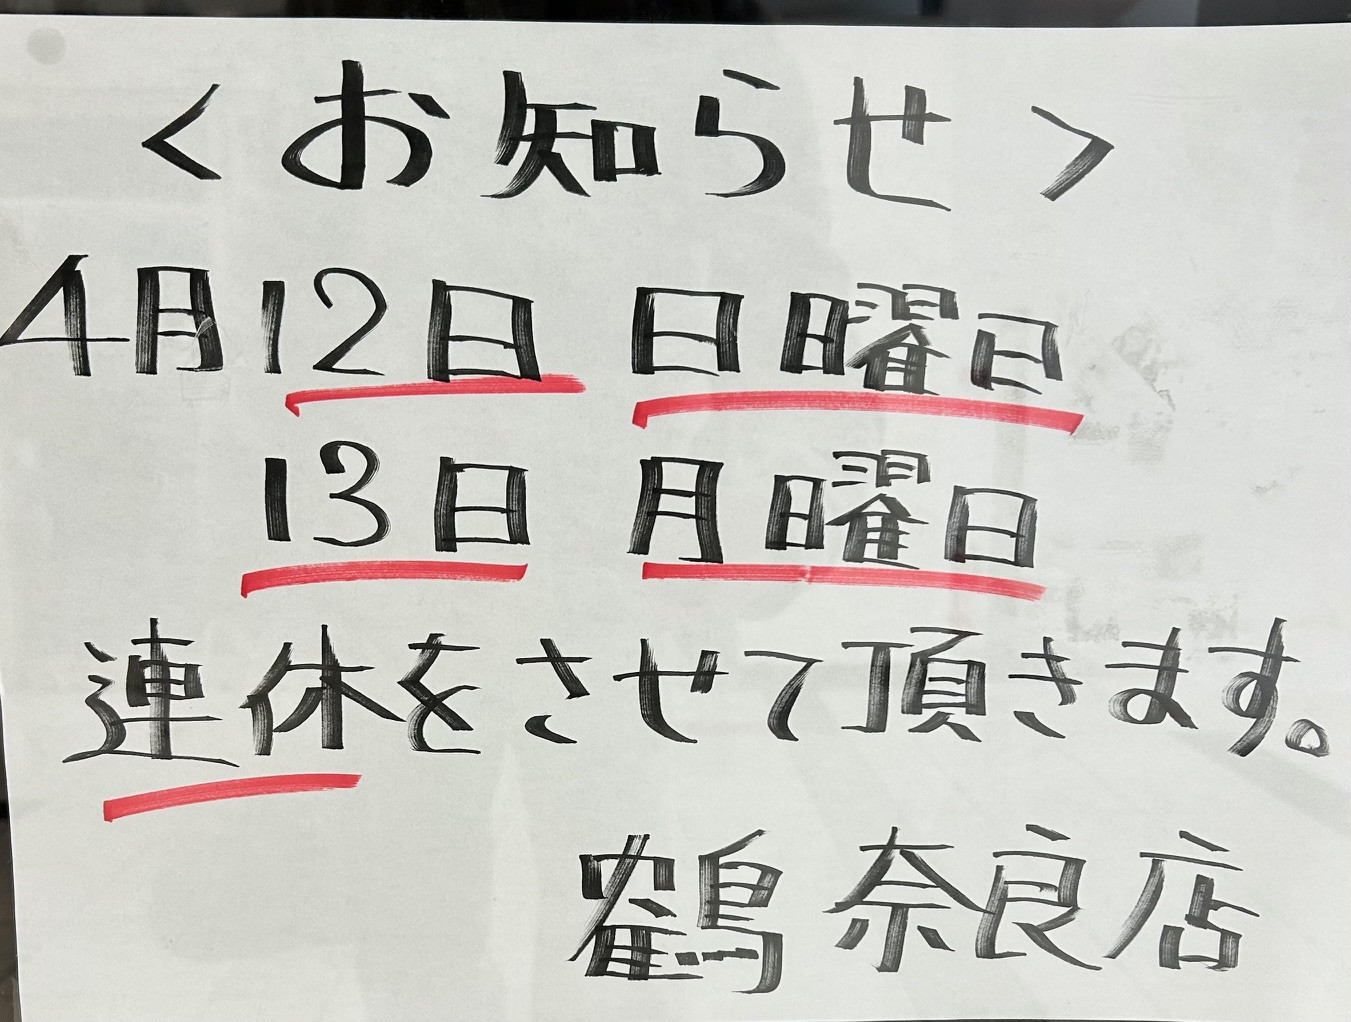 ＜お知らせ＞
4月12日 日曜日
13日 月曜日
連休をさせて頂きます。
鶴 奈良店